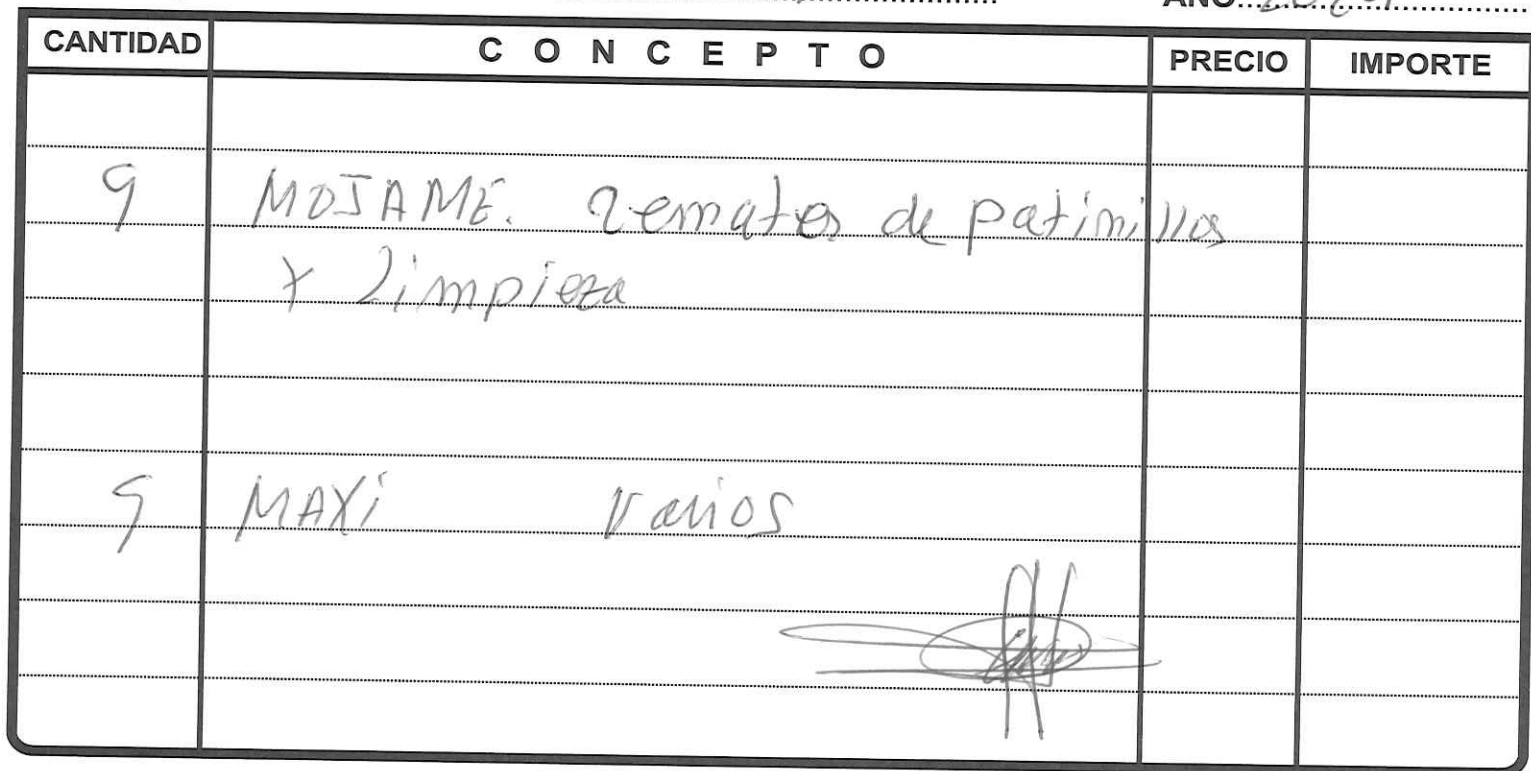 AÑO
CANTIDAD CONCEPTO PRECIO IMPORTE
9 MOJAME. remates de patinillos
Y Limpieza
9 MAXI Varios